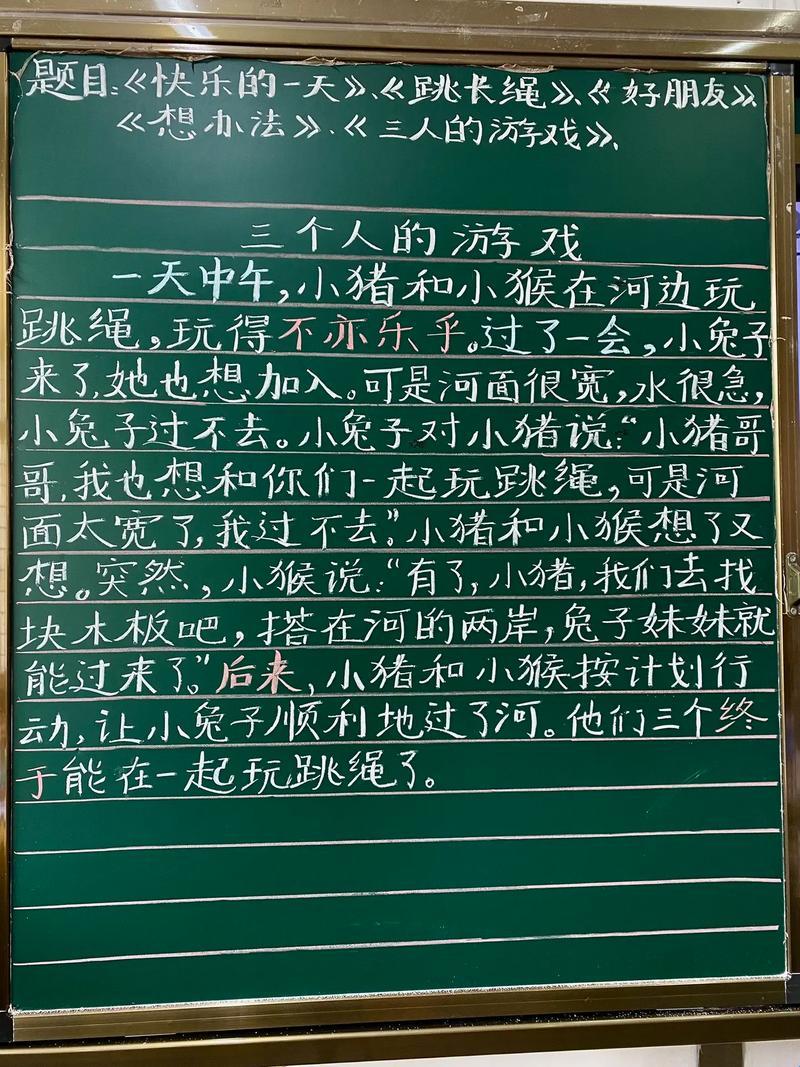 题目:《快乐的一天》、《跳长绳》、《好朋友》、
《想办法》、《三人的游戏》、
三个人的游戏
一天中午,小猪和小猴在河边玩
跳绳,玩得不亦乐乎。过了一会,小兔子
来了,她也想加入。可是河面很宽,水很急,
小兔子过不去。小兔子对小猪说:“小猪哥
哥,我也想和你们一起玩跳绳,可是河
面太宽了,我过不去。”小猪和小猴想了又
想。突然,小猴说:“有了,小猪,我们去找
块木板吧,搭在河的两岸,兔子妹妹就
能过来了。”后来,小猪和小猴按计划行
动,让小兔子顺利地过了河。他们三个终
于能在一起玩跳绳了。